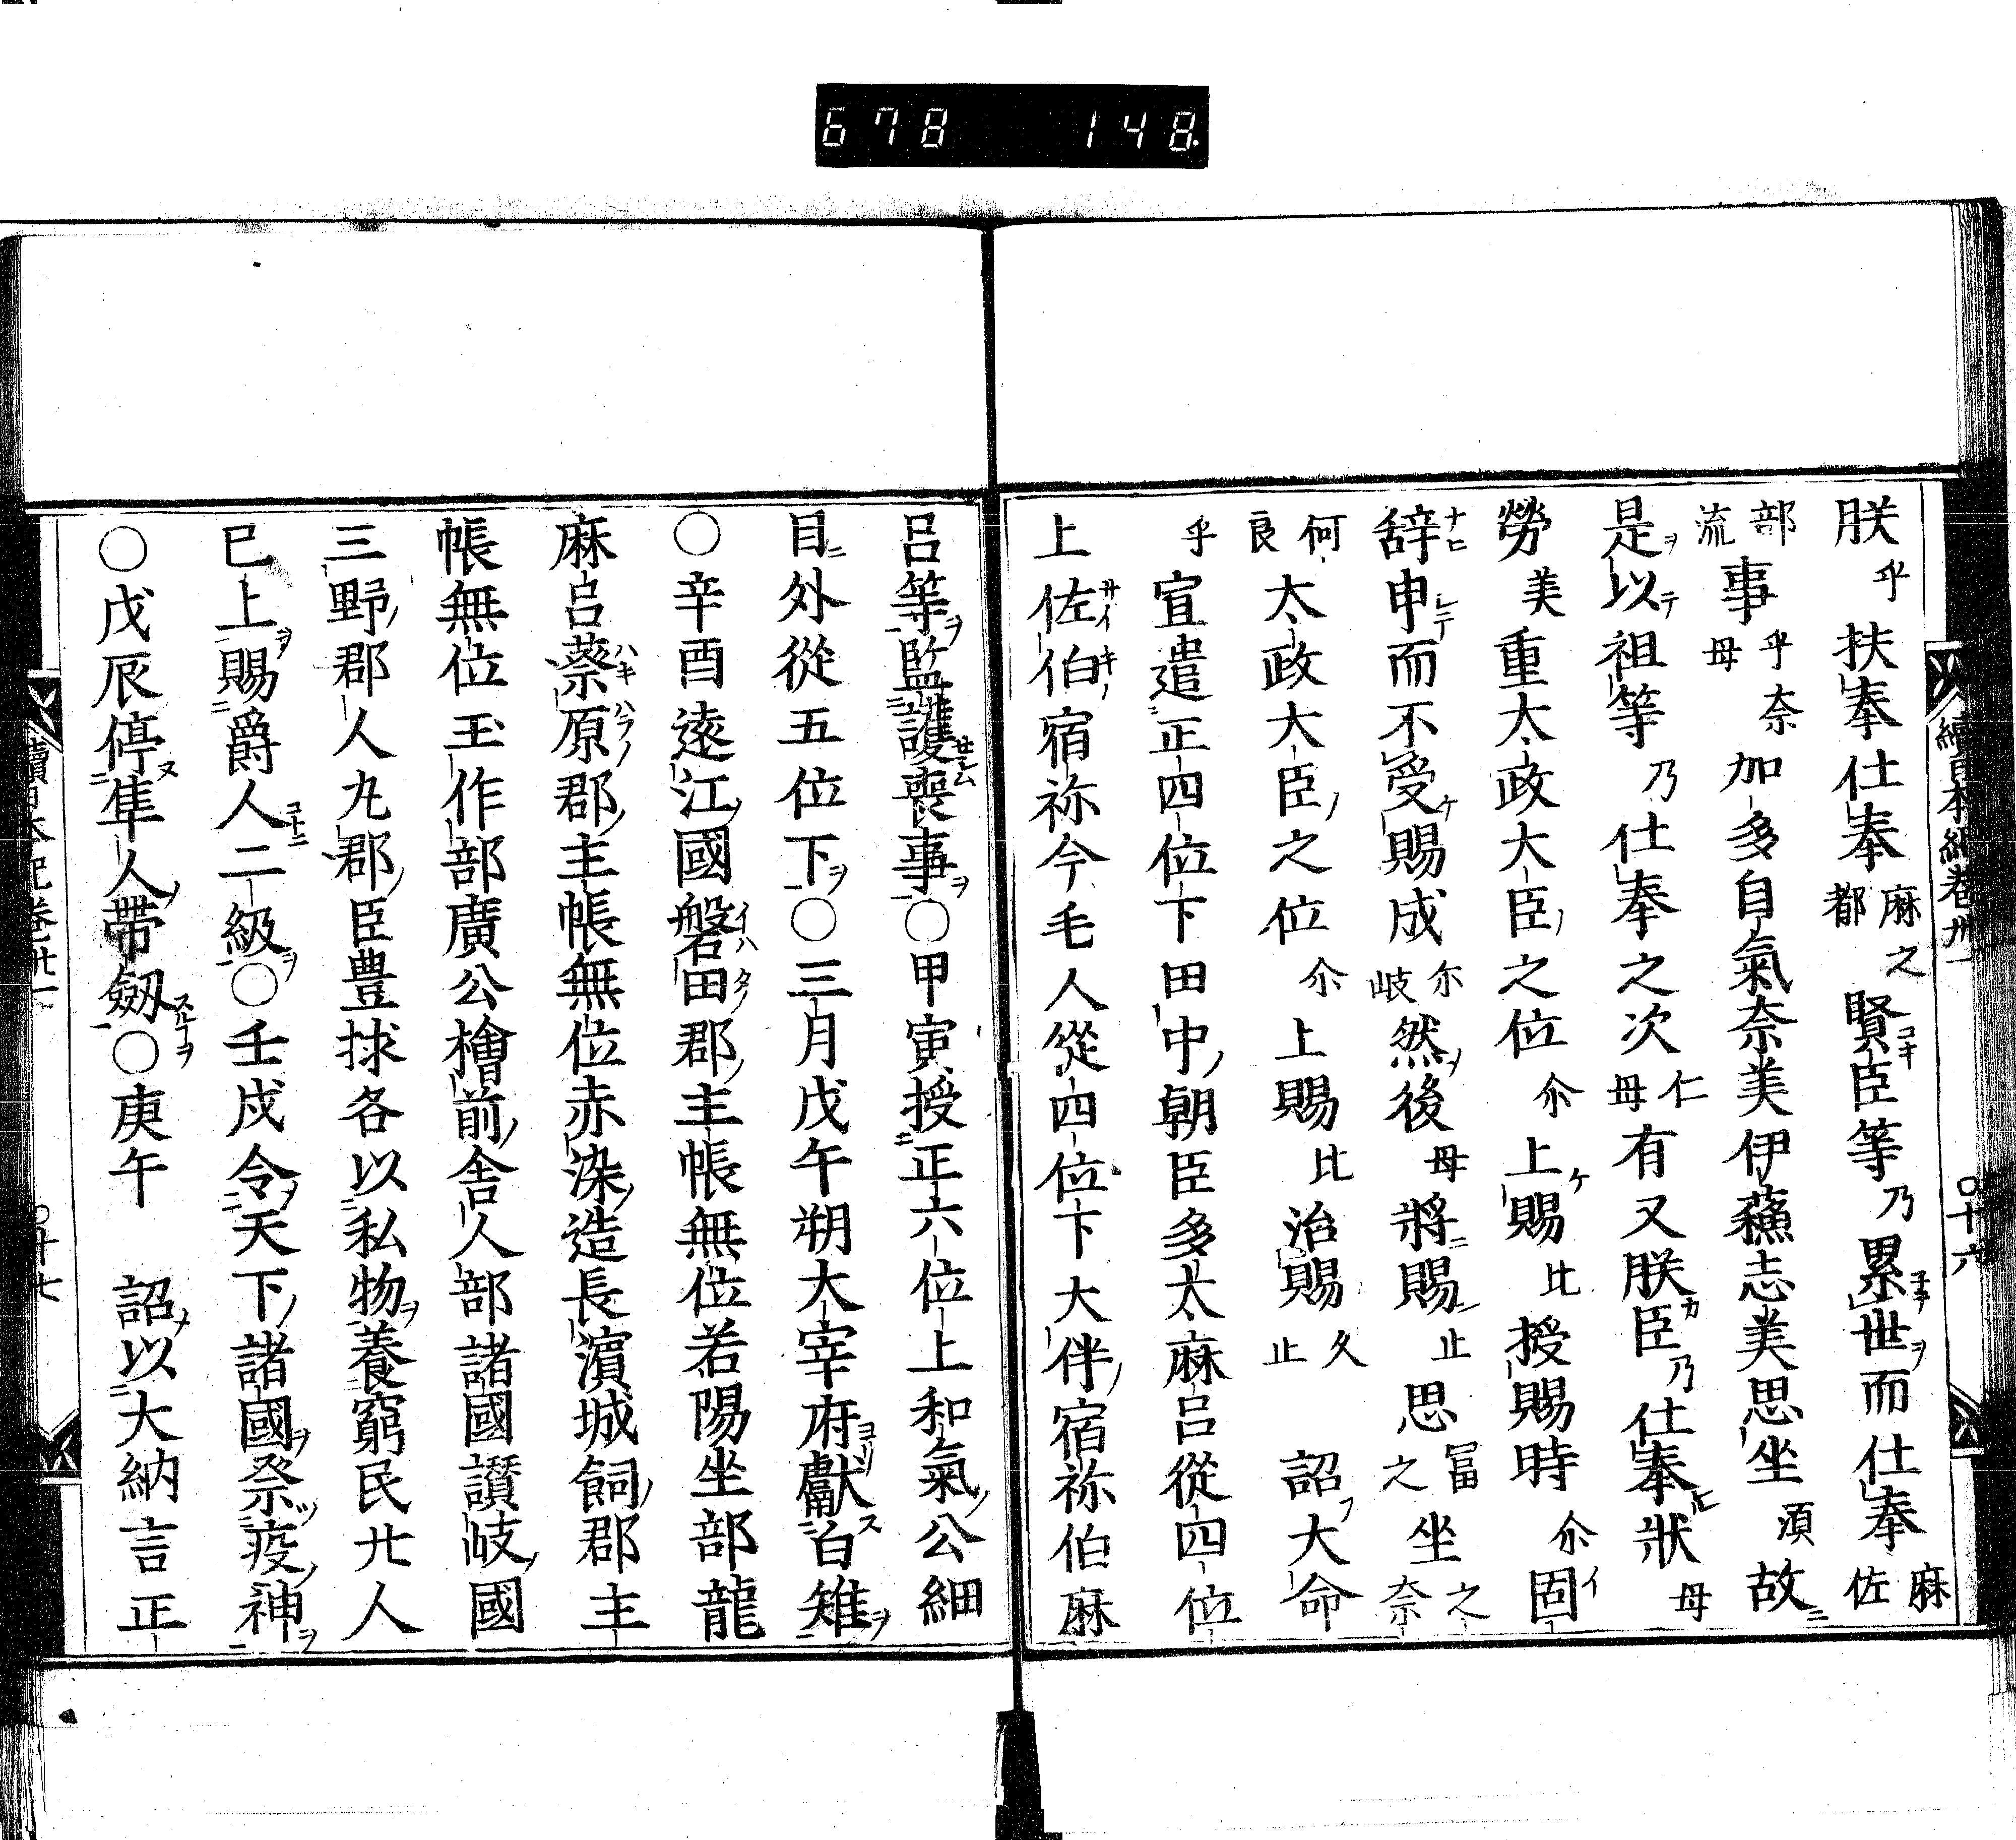 678 148.
續日本紀卷卅一 ○十六
朕乎扶奉仕奉麻之都賢臣等乃累世而仕奉麻佐
部流事乎母奈加多自氣奈美伊蘓志美思坐湏故
是以祖等乃仕奉之次仁母有又朕臣乃仕奉狀母
勞美重太政大臣之位尒上賜比授賜時尒固
辞申而不受賜成尔岐然後母將賜止思冨之坐之奈
何良太政大臣之位尒上賜比治賜久止詔大命
乎宣遣正四位下田中朝臣多太麻呂從四位
上佐伯宿祢今毛人從四位下大伴宿祢伯麻
呂等監護喪事○甲寅授正六位上和氣公細
目外從五位下○三月戊午朔大宰府獻白雉
○辛酉遠江國磐田郡主帳無位若陽坐部龍
麻呂蓁原郡主帳無位赤染造長濵城飼郡主
帳無位玉作部廣公檜前舎人部諸國讃岐國
三野郡人九郡臣豊捄各以私物養窮民廿人
已上賜爵人二級○壬戌令天下諸國祭疫神
○戊辰停隼人帶劔○庚午 詔以大納言正
續日本紀卷卅一 ○十七